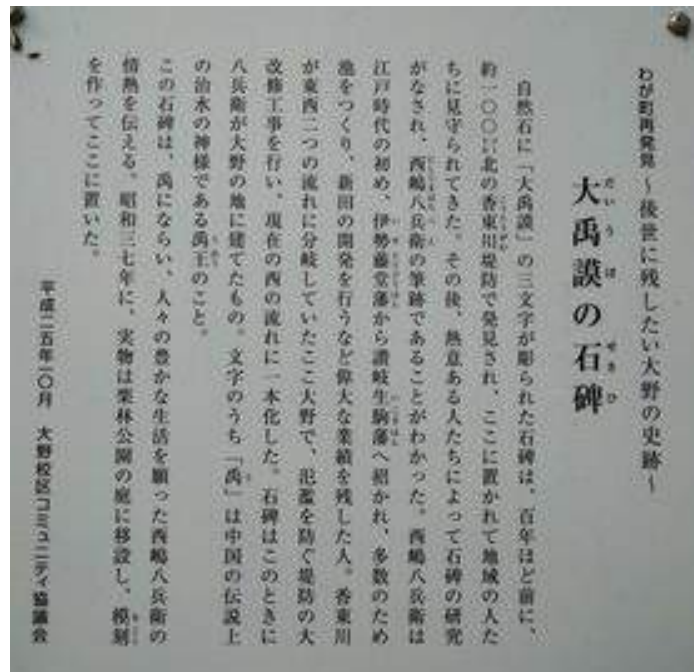 わが町再発見 〜後世に残したい大野の史跡〜
大禹謨の石碑
自然石に「大禹謨」の三文字が彫られた石碑は、百年ほど前に、
約一〇〇㍍北の香東川堤防で発見され、ここに置かれて地域の人た
ちに見守られてきた。その後、熱意ある人たちによって石碑の研究
がなされ、西嶋八兵衛の筆跡であることがわかった。西嶋八兵衛は
江戸時代の初め、伊勢藤堂藩から讃岐生駒藩へ招かれ、多数のため
池をつくり、新田の開発を行うなど偉大な業績を残した人。香東川
が東西二つの流れに分岐していたここ大野で、氾濫を防ぐ堤防の大
改修工事を行い、現在の西の流れに一本化した。石碑はこのときに
八兵衛が大野の地に建てたもの。文字のうち「禹」は中国の伝説上
の治水の神様である禹王のこと。
この石碑は、禹にならい、人々の豊かな生活を願った西嶋八兵衛の
情熱を伝える。昭和三七年に、実物は栗林公園の庭に移設し、模刻
を作ってここに置いた。
平成二五年一〇月 大野校区コミュニティ協議会